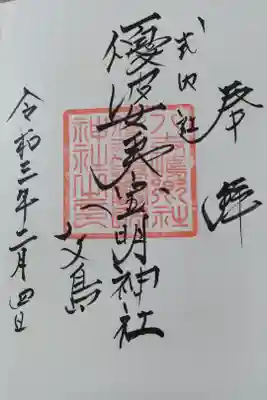 奉拝
式内社
優婆夷宝明神社
八丈島
令和三年二月四日